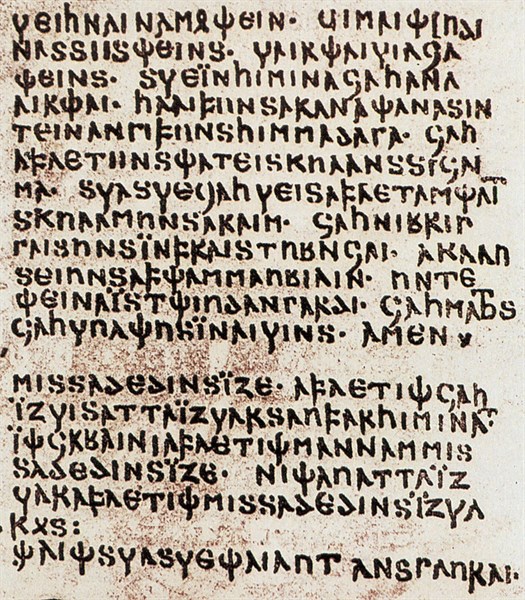 𐍅𐌴𐌹𐌷𐌽𐌰𐌹𐌽𐌰𐌼𐍉𐌸𐌴𐌹𐌽· 𐌵𐌹𐌼𐌰𐌹𐌸𐌹𐌿𐌳𐌹
𐌽𐌰𐍃𐍃𐌿𐍃𐌸𐌴𐌹𐌽𐍃· 𐍅𐌰𐌹𐍂𐌸𐌰𐌹𐍅𐌹𐌻𐌾𐌰
𐌸𐌴𐌹𐌽𐍃· 𐍃𐍅𐌴𐌹̈𐌽𐌷𐌹𐌼𐌹𐌽𐌰𐌾𐌰𐌷𐌰𐌽𐌰
𐌰𐌹𐍂𐌸𐌰𐌹· 𐌷𐌻𐌰𐌹𐍆𐌿𐌽𐍃𐌰𐍂𐌰𐌽𐌰𐌸𐌰𐌽𐌰𐍃𐌹𐌽
𐍄𐌴𐌹𐌽𐌰𐌽𐌲𐌹𐍆𐌿𐌽𐍃𐌷𐌹𐌼𐌼𐌰𐌳𐌰𐌲𐌰· 𐌾𐌰𐌷
𐌰𐍆𐌻𐌴𐍄𐌿𐌽𐍃𐌸𐌰𐍄𐌴𐌹𐍃𐌺𐌿𐌻𐌰𐌽𐍃𐍃𐌹𐌾𐌰𐌹
𐌼𐌰· 𐍃𐍅𐌰𐍃𐍅𐌴𐌾𐌰𐌷𐍅𐌴𐌹𐍃𐌰𐍆𐌻𐌴𐍄𐌰𐌼𐌸𐌰𐌹𐌼
𐍃𐌺𐌿𐌻𐌰𐌼𐌿𐌽𐍃𐌰𐍂𐌰𐌹𐌼· 𐌾𐌰𐌷𐌽𐌹𐌱𐍂𐌹𐌲
𐌲𐌰𐌹𐍃𐌿𐌽𐍃𐌹̈𐌽𐍆𐍂𐌰𐌹𐍃𐍄𐌿𐌱𐌽𐌾𐌰𐌹· 𐌰𐌺𐌻𐌰𐌿
𐍃𐌴𐌹𐌿𐌽𐍃𐌰𐍆𐌸𐌰𐌼𐌼𐌰𐌿𐌱𐌹𐌻𐌹𐌽· 𐌿𐌽𐍄𐌴
𐌸𐌴𐌹𐌽𐌰𐌹̈𐍃𐍄𐌸𐌹𐌿𐌳𐌰𐌽𐌲𐌰𐍂𐌳𐌹· 𐌾𐌰𐌷𐌼𐌰𐌷𐍄𐍃
𐌾𐌰𐌷𐍅𐌿𐌻𐌸𐌿𐍃𐌹̈𐌽𐌰𐌹𐍅𐌹𐌽𐍃· 𐌰𐌼𐌴𐌽
𐌼𐌹𐍃𐍃𐌰𐌳𐌴𐌳𐌹𐌽𐍃𐌹̈𐌶𐌴· 𐌰𐍆𐌻𐌴𐍄𐌹𐌸𐌾𐌰𐌷
𐌹̈𐌶𐍅𐌹𐍃𐌰𐍄𐍄𐌰𐌹̈𐌶𐍅𐌰𐍂𐍃𐌰𐌿𐍆𐌰𐍂𐌷𐌹𐌼𐌹𐌽𐌰𐌼·
𐌹̈𐌸𐌾𐌰𐌱𐌰𐌹𐌽𐌹𐌰𐍆𐌻𐌴𐍄𐌹𐌸𐌼𐌰𐌽𐌽𐌰𐌼𐌼𐌹𐍃
𐍃𐌰𐌳𐌴𐌳𐌹𐌽𐍃𐌹̈𐌶𐌴· 𐌽𐌹𐌸𐌰𐌿𐌰𐍄𐍄𐌰𐌹̈𐌶
𐍅𐌰𐍂𐌰𐍆𐌻𐌴𐍄𐌹𐌸𐌼𐌹𐍃𐍃𐌰𐌳𐌴𐌳𐌹𐌽𐍃𐌹̈𐌶𐍅𐌰
𐍂𐍉𐍃:
𐌸𐌰𐌹𐌸𐍃𐍅𐌰𐍃𐍅𐌴𐌸𐌰𐌹𐌻𐌹𐌿𐍄 𐌰𐌽𐍃𐌲𐌰𐌿𐍂𐌰𐌹·